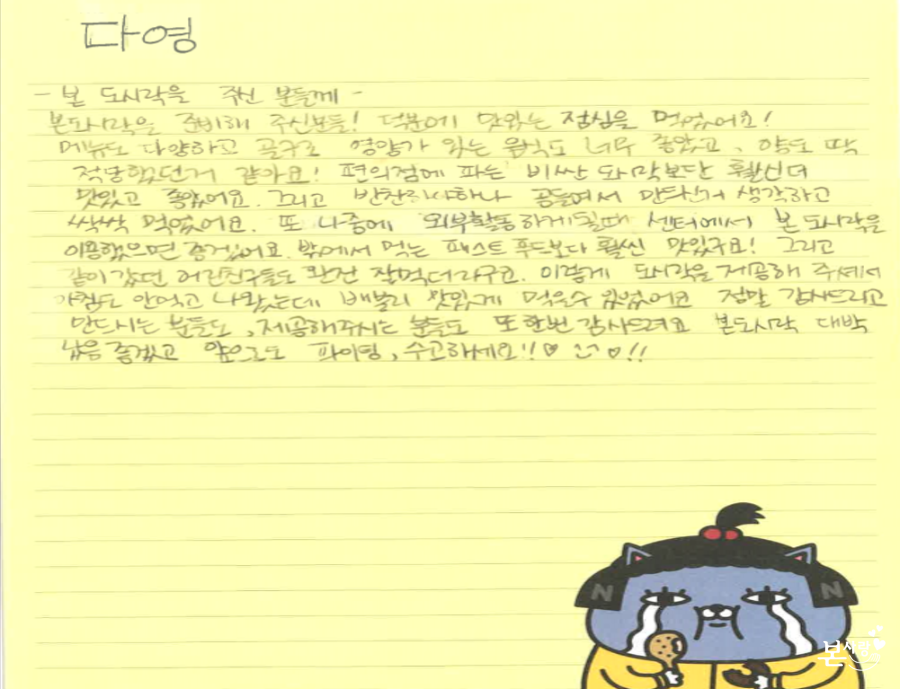 다영
- 본 도시락을 주신 분들께 -
본도시락을 준비해 주신분들! 덕분에 맛있는 점심을 먹었어요!
메뉴도 다양하고 골구로 영양가 있는 음식도 너무 좋았고, 양도 딱
적당했었던거 같아요! 편의점에 파는 비싼 도시락보단 훨신더
맛있고 좋았어요. 그리고 반찬하나하나 공들여서 만드신거 생각하고
싹싹 먹었어요. 또 나중에 외부활동하게될때 센터에서 본 도시락을
이용했으면 좋겠어요. 밖에서 먹는 패스트 푸드보다 훨씬 맛있구요! 그리고
같이 갔던 어린친구들도 완전 잘먹더라구요. 이렇게 도시락을 제공해 주셔서
아침도 안먹고 나왔는데 배불리 맛있게 먹을수 있었어요 정말 감사드리고
만드시는 분들도, 제공해주시는 분들도 또한번 감사드려요 본도시락 대박
났음 좋겠고 앞으로도 파이팅, 수고하세요!!♡ ♡!!
N N
본사랑